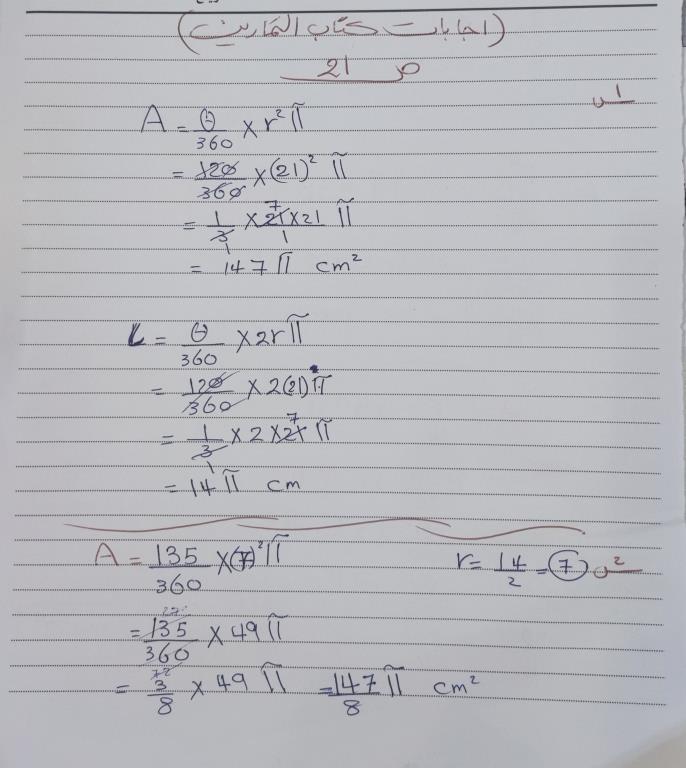 (اجابات كتاب التمارين)
ص 21
س1
A = θ/360 × r² π
= 120/360 × (21)² π
= 1/3 × 21 × 21 π
= 147 π cm²
L = θ/360 × 2r π
= 120/360 × 2(21) π
= 1/3 × 2 × 21 π
= 14 π cm
س2 r = 14/2 = 7
A = 135/360 × (7)² π
= 135/360 × 49 π
= 3/8 × 49 π = 147/8 π cm²